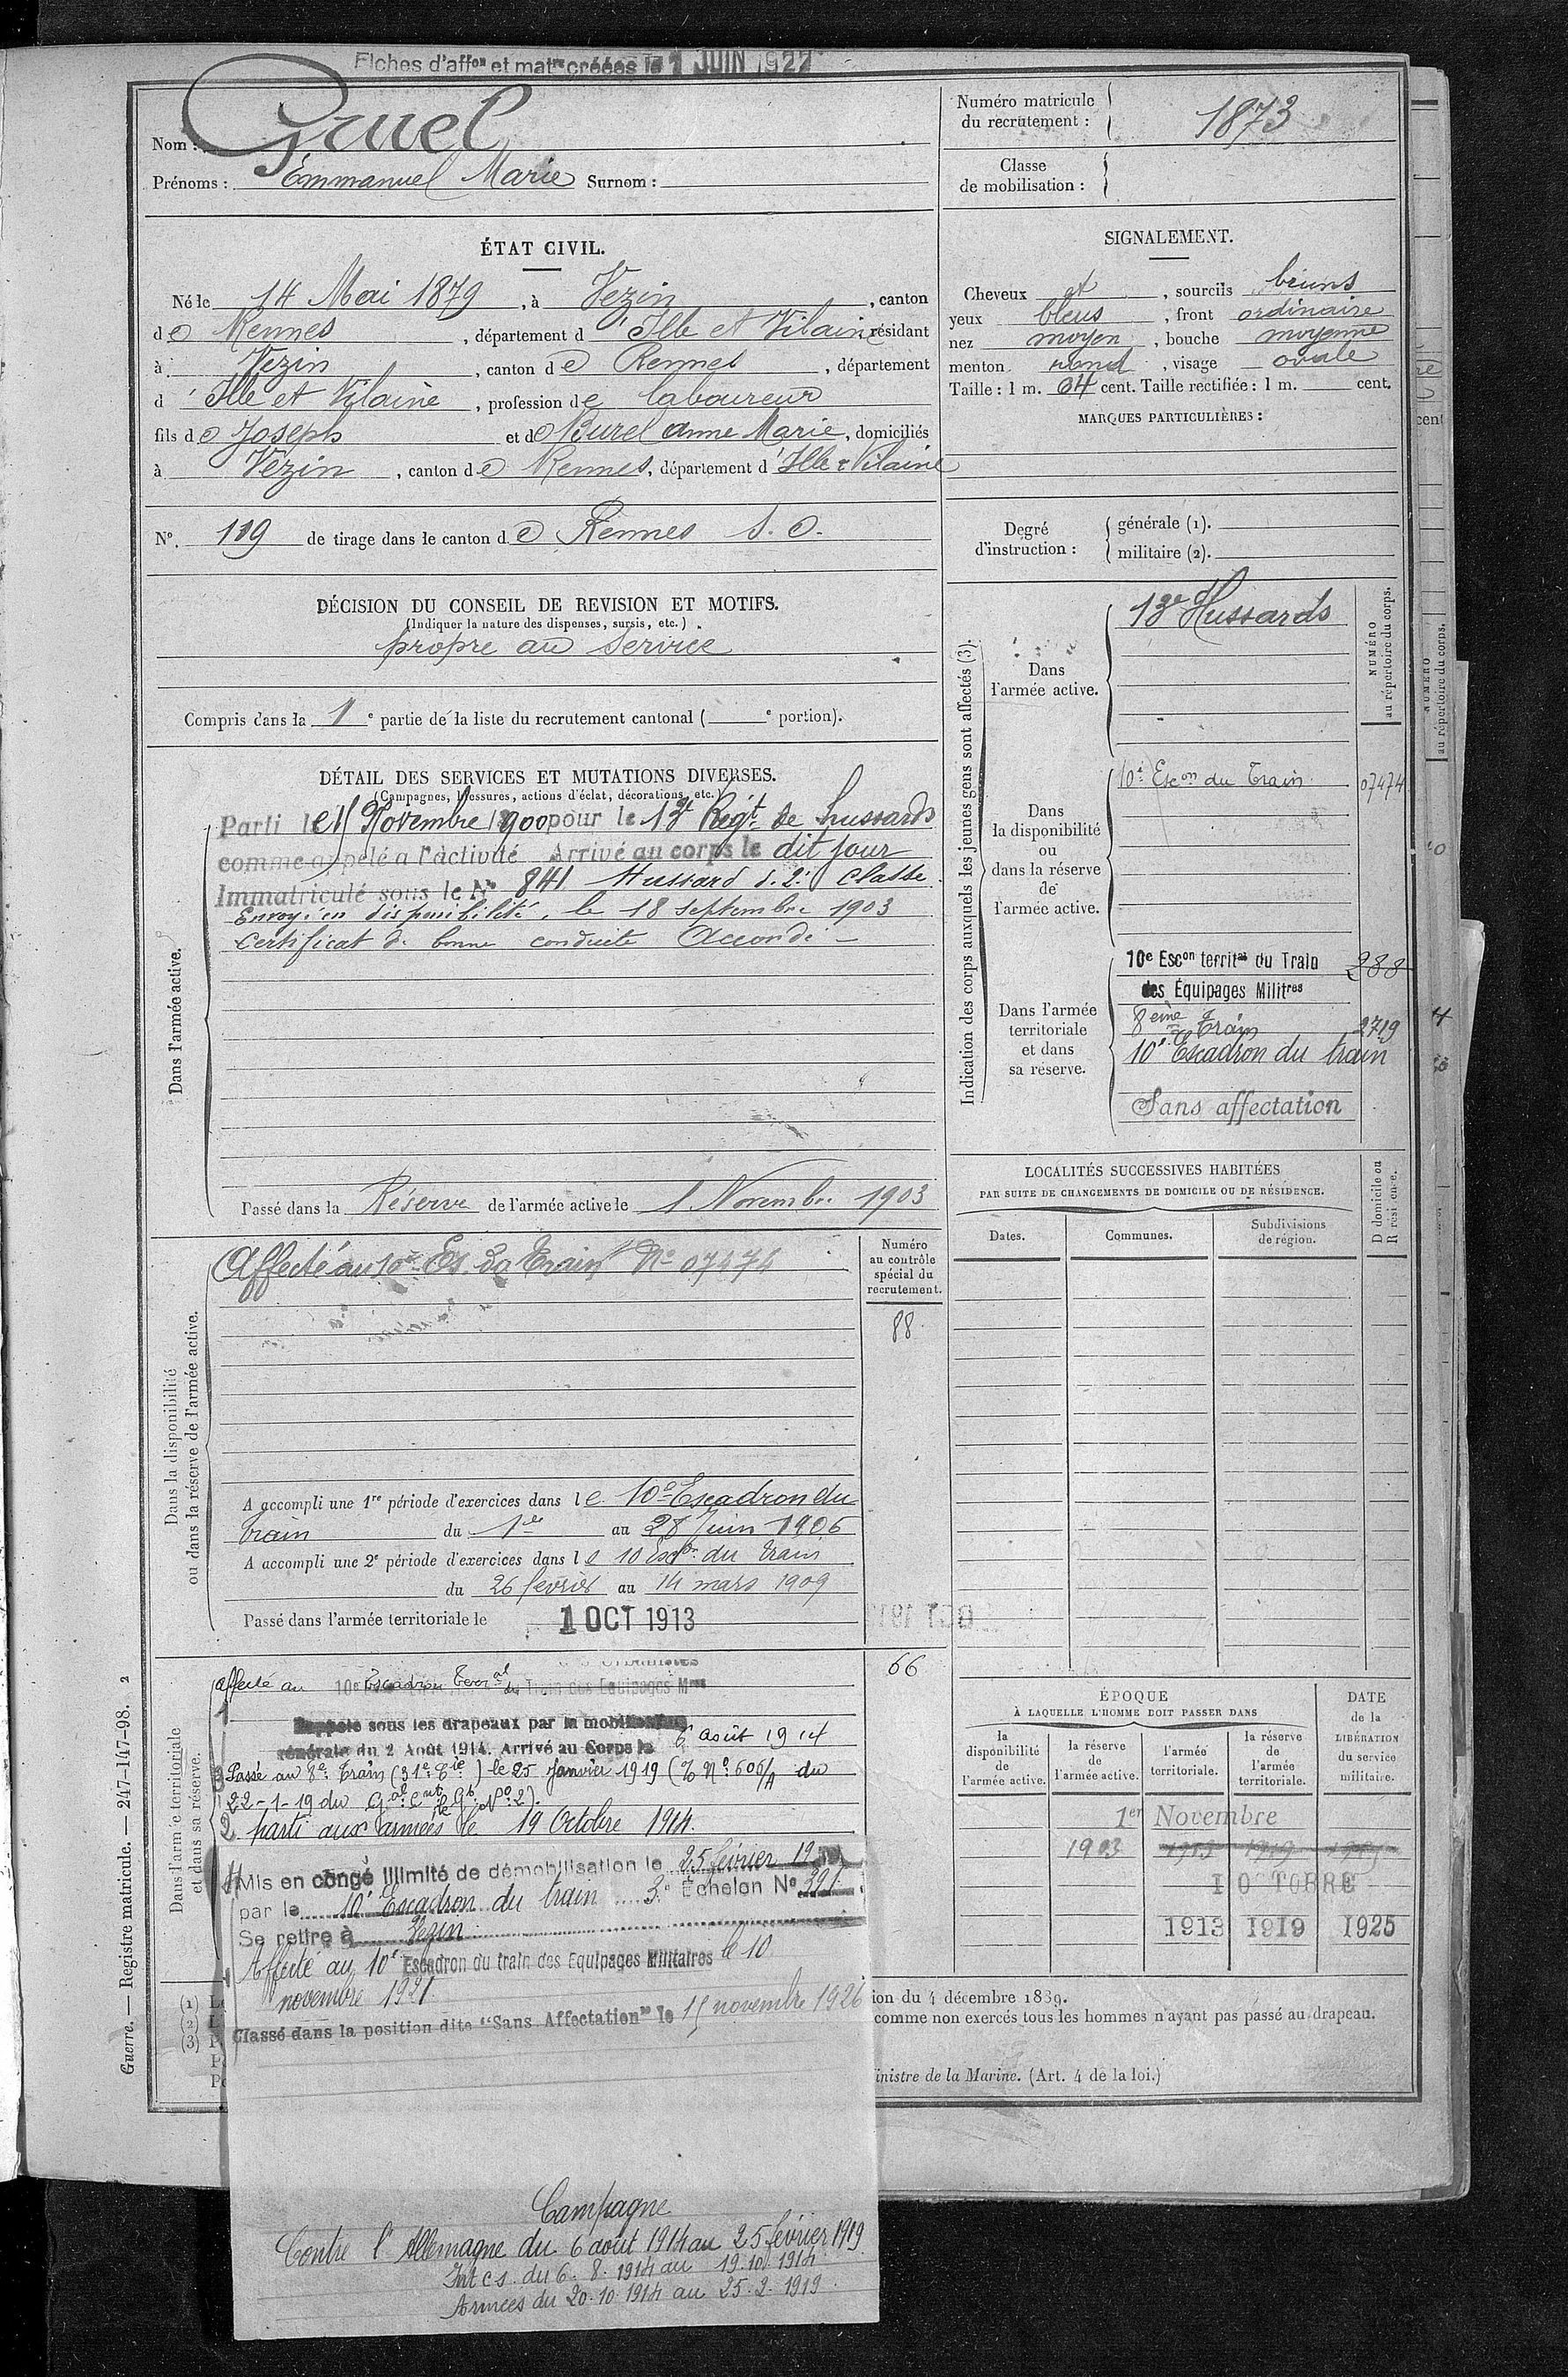 Fiches d'affon et matre créées le 1 JUIN 1927
Nom : Gruel
Prénoms : Emmanuel Marie Surnom :
Numéro matricule du recrutement : 1873
Classe de mobilisation :
ÉTAT CIVIL.
Né le 14 Mai 1879, à Vezin, canton
de Rennes, département d'Ille et Vilaine résidant
à Vezin, canton de Rennes, département
d'Ille et Vilaine, profession de laboureur
fils de Joseph et de Burel Anne Marie, domiciliés
à Vezin, canton de Rennes, département d'Ille & Vilaine
N° 119 de tirage dans le canton de Rennes S. O.
SIGNALEMENT.
Cheveux et, sourcils bruns
yeux bleus, front ordinaire
nez moyen, bouche moyenne
menton rond, visage ovale
Taille : 1 m. 64 cent. Taille rectifiée : 1 m. cent.
MARQUES PARTICULIÈRES :
Degré d'instruction :
générale (1).
militaire (2).
DÉCISION DU CONSEIL DE REVISION ET MOTIFS.
(Indiquer la nature des dispenses, sursis, etc.)
propre au service
Compris dans la 1e partie de la liste du recrutement cantonal ( e portion).
DÉTAIL DES SERVICES ET MUTATIONS DIVERSES.
(Campagnes, blessures, actions d'éclat, décorations, etc.)
Dans l'armée active.
Parti le Novembre 1900 pour le 13e Régt de hussards
comme appelé à l'activité Arrivé au corps le dit jour
Immatriculé sous le N° 841 Hussard d. 2e Classe
Envoyé en disponibilité, le 18 septembre 1903
Certificat de bonne conduite Accordé -
Passé dans la Réserve de l'armée active le 1 Novembre 1903
Dans la disponibilité
ou dans la réserve de l'armée active.
Affecté au 10e Es. du Train N° 07474
Numéro
au contrôle
spécial du
recrutement.
88
A accompli une 1re période d'exercices dans le 10e Escadron du
train du 1er au 28 Juin 1906
A accompli une 2e période d'exercices dans le 10 Escon du train
du 26 février au 14 mars 1909
Passé dans l'armée territoriale le 1 OCT 1913
Dans l'armée territoriale
et dans sa réserve.
66
affecté au 10e Escadron Terral du Train des Equipages Mres
sous les drapeaux par la mobilisation
générale du 2 Août 1914. Arrivé au Corps le 6 Août 1914
3 Passé au 8e Train (31e Cie) le 25 Janvier 1919 (N° 606/A du
22-1-19 du
2 parti aux armées le 19 Octobre 1914.
4 Mis en congé illimité de démobilisation le 25 février 19
par le 10e Escadron du train 3e Échelon N° 391
Se retire à Vezin
Affecté au 10e Escadron du train des Equipages Militaires le 10
novembre 1921
Classé dans la position dite "Sans Affectation" le 15 novembre 1926
Campagne
Contre l'Allemagne du 6 août 1914 au 25 février 1919
Int cs. du 6. 8. 1914 au 19. 10. 1914
Armées du 20. 10. 1914 au 25. 2. 1919.
Indication des corps auxquels les jeunes gens sont affectés (3).
NUMÉRO
au répertoire du corps.
Dans
l'armée active.
13e Hussards
Dans
la disponibilité
ou
dans la réserve
de
l'armée active.
10e Escon du Train 07474
Dans l'armée
territoriale
et dans
sa réserve.
10e Escon territal du Train 288
des Équipages Militres
8ème Train 2719
10e Escadron du train
Sans affectation
LOCALITÉS SUCCESSIVES HABITÉES
PAR SUITE DE CHANGEMENTS DE DOMICILE OU DE RÉSIDENCE.
Dates. Communes. Subdivisions de région.
D domicile ou
R résidence.
ÉPOQUE
À LAQUELLE L'HOMME DOIT PASSER DANS
la disponibilité de l'armée active.
la réserve de l'armée active.
l'armée territoriale.
la réserve de l'armée territoriale.
DATE de la LIBÉRATION du service militaire.
1er Novembre
1903 1913 1919
1 OCTOBRE
1913 1919 1925
ion du 4 décembre 1889.
comme non exercés tous les hommes n'ayant pas passé au drapeau.
inistre de la Marine. (Art. 4 de la loi.)
(1)
(2)
(3)
Guerre. — Registre matricule. — 247-147-98. 2